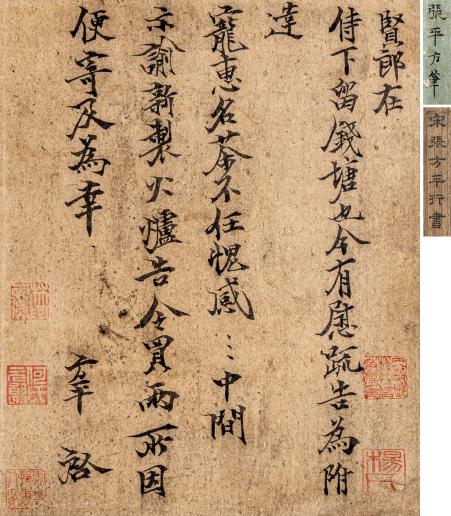 賢郎在
侍下留錢塘也今有慰疏告為附
達
寵惠名茶不任愧感〻中間
示諭新製火爐告令買兩所因
便寄及為幸
方平 啓
張平方筆
宋張方平行書